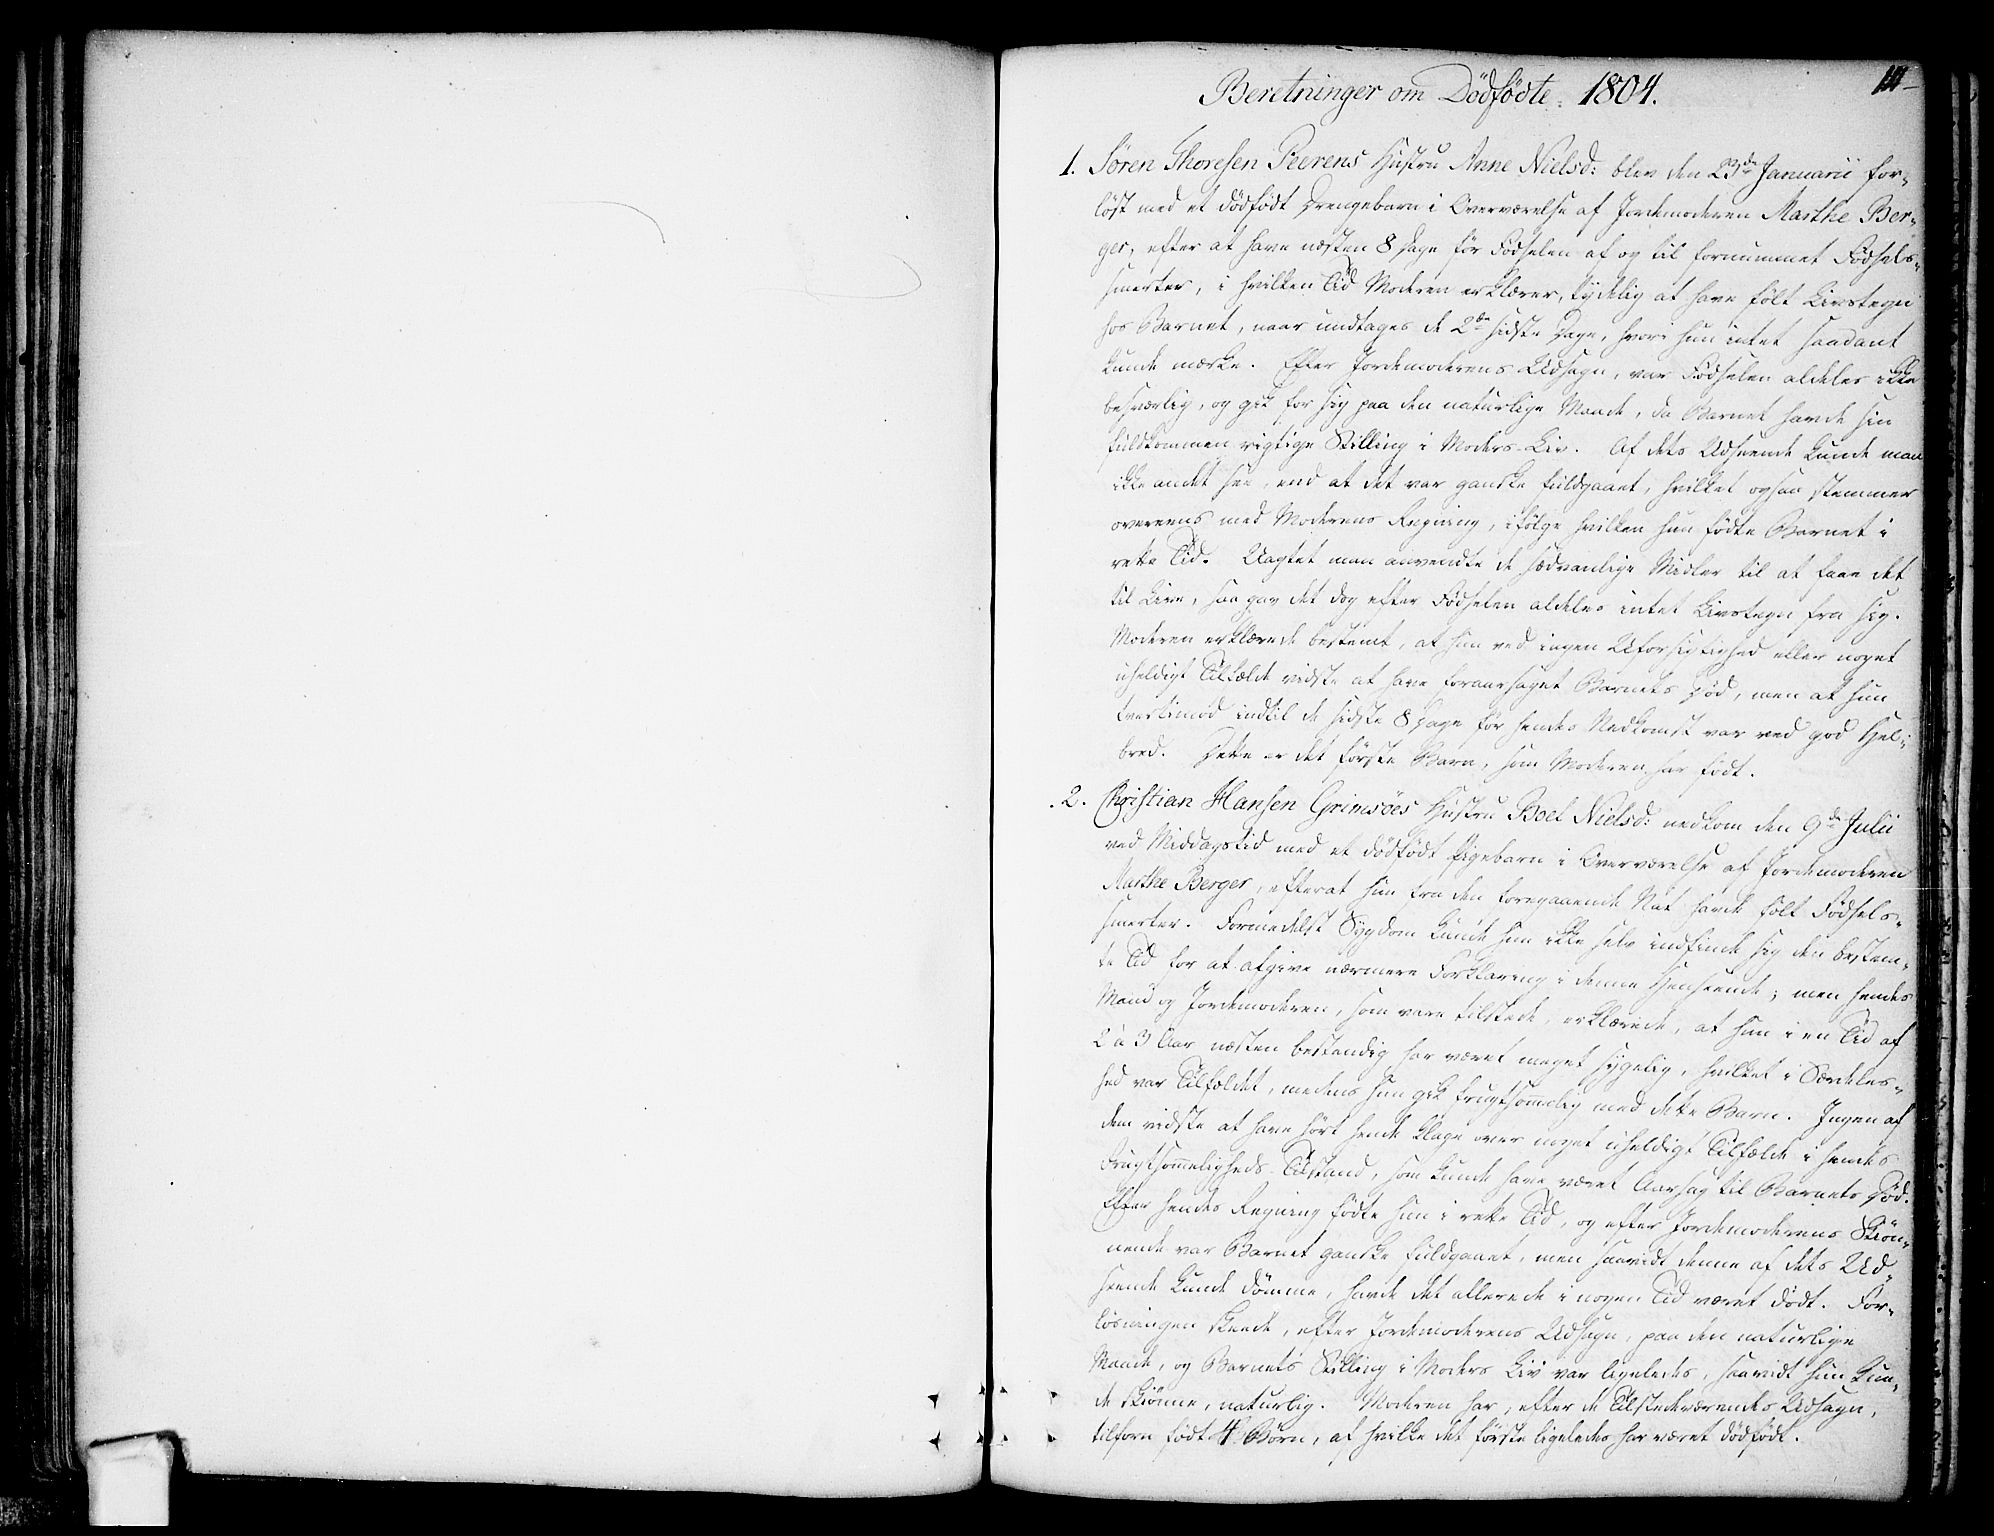 Beretninger om Dödfödte. 1804.
1. Sören Thoresen Peerens Hustru Anne Nielsd: blev den 23de Januarii for-
löst med et dödfödt Drengebarn i Overværelse af Jordemoderen Marthe Ber-
ger, efter at have næsten 8 Dage för Födselen af og til fornummet Födsels-
smerter, i hvilken Tid Moderen erklærer, tydelig at have fölt Livstegn
hos Barnet, naar undtages de 2de sidste Dage, hvori hun intet saadant
kunde mærke. Efter Jordemoderens Udsagn, var Födselen aldeles ikke
besværlig, og gik for sig paa den naturlige Maade, da Barnet havde sin
fuldkommen rigtige Stilling i Moders Liv. Af dets Udseende kunde man
ikke andet see, end at det var ganske fuldgaaet, hvilket ogsaa stemmer
overeens med Moderens Regning, ifölge hvilken hun födte Barnet i
rette Tid. Uagtet man anvendte de sædvanlige Midler til at faae det
til Live, saa gav det dog efter Födselen aldeles intet Livstegn fra sig.
Moderen erklærede bestemt, at hun ved ingen Uforsigtighed eller noget
uheldigt Tilfælde vidste at have foraarsaget Barnets Död, men at hun
tvertimod indtil de sidste 8 Dage för hendes Nedkomst var ved god Hel-
bred. Dette er det förste Barn, som Moderen har födt.
2. Christian Hansen Grimsöes Hustru Boel Nielsd: nedkom den 9de Julii
ved Middagstid med et dödfödt Pigebarn i Overværelse af Jordemoderen
Marthe Berger, efterat hun fra den foregaaende Nat havde fölt Födsels-
smerter. Formedelst Sygdom kunde hun ikke selv indfinde sig den bestem-
te Tid for at afgive nærmere Forklaring i denne Henseende; men hendes
Mand og Jordemoderen, som vare tilstede, erklærede, at hun i en Tid af
2 à 3 Aar næsten bestendig har været meget sygelig, hvilket i Særdeles-
hed var Tilfældet, medens hun gik frugtsommelig med dette Barn. Ingen af
dem vidste at have hört hende klage over noget uheldigt Tilfælde i hendes
Frugtsommeligheds Tilstand, som kunde have været Aarsag til Barnets Död.
Efter hendes Regning födte hun i rette Tid, og efter Jordemoderens Skiön-
nende var Barnet ganske fuldgaaet, men saavidt denne af dets Ud-
seende kunde dömme, havde det allerede i nogen Tid været dödt. For-
lösningen skeede, efter Jordemoderens Udsagn, paa den naturlige
Maade, og Barnets Stilling i Moders Liv var ligeledes, saavidt hun kun-
de skiönne, naturlig. Moderen har, efter de Tilstedeværendes Udsagn,
tilforn födt 4 Börn, af hvilke det förste ligeledes har været dödfödt.